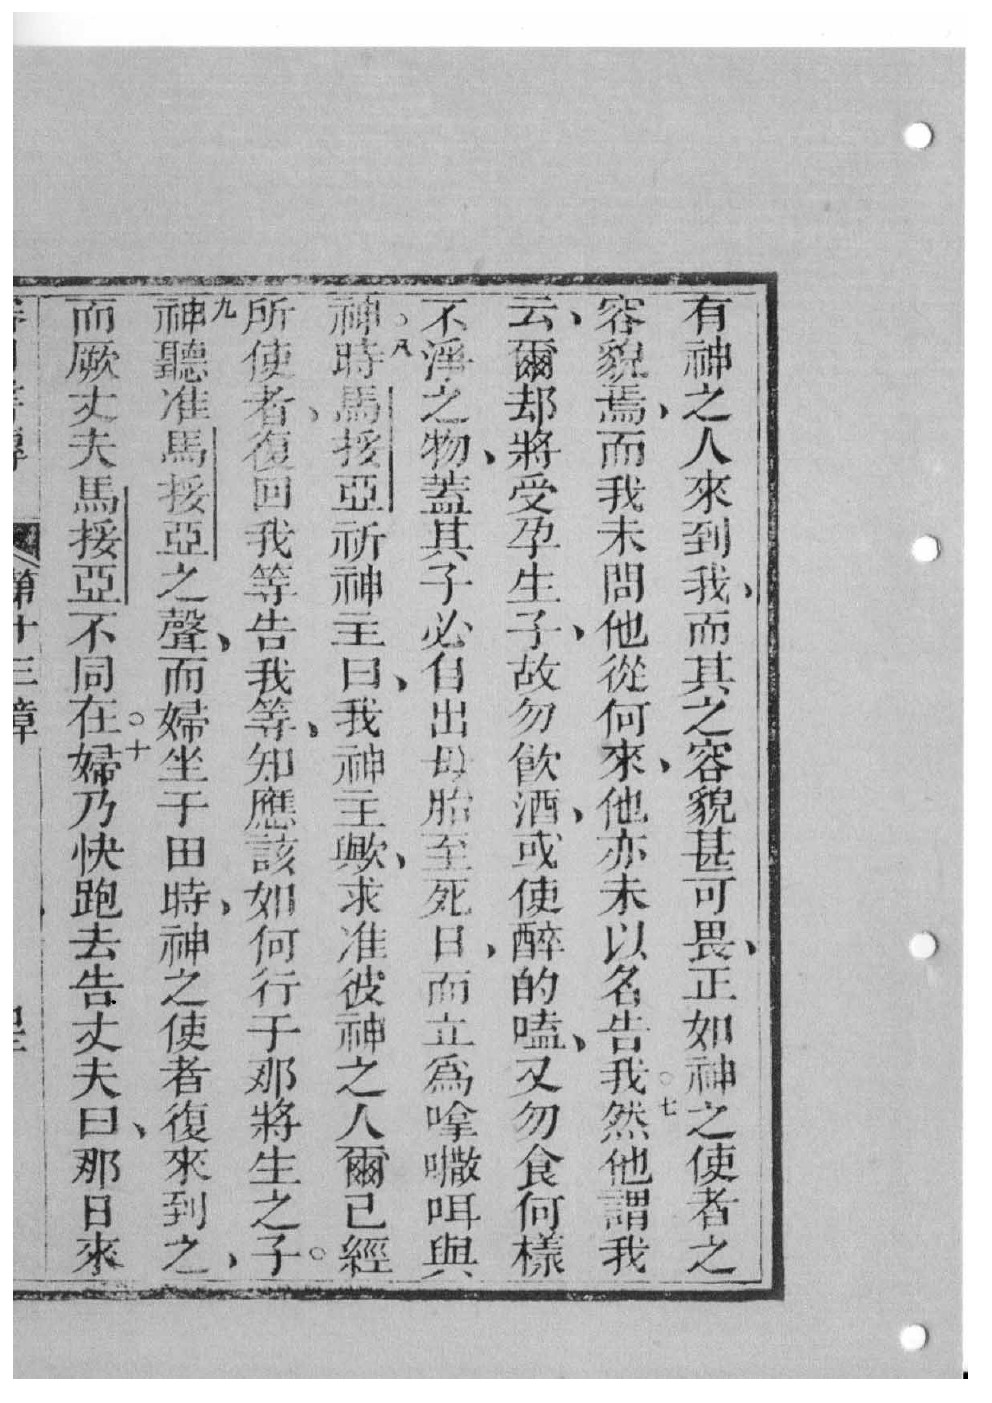 有神之人來到我、而其之容貌甚可畏、正如神之使者之
容貌焉、而我未問他從何來、他亦未以名告我○七然他謂我
云、爾却將受孕生子、故勿飲酒、或使醉的嗑、又勿食何樣
不淨之物、蓋其子必自出母胎至死日、而立為嗱㘔咡與
神○八時馬挼亞祈神主曰、我神主歟、求准彼神之人爾已經
所使者、復回我等告我等、知應該如何行于那將生之子○
九神聽准馬挼亞之聲、而婦坐于田時、神之使者復來到之、
而厥丈夫馬挼亞不同在○十婦乃快跑去告丈夫曰、那日來
第十三章